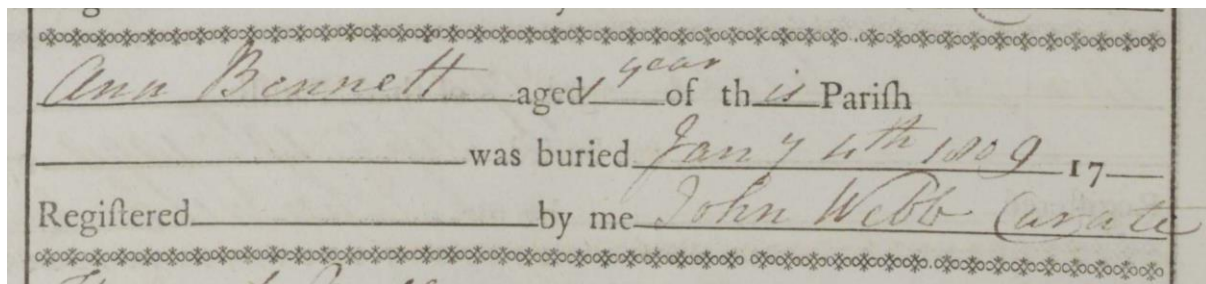 Ann Bennett aged 1 year of this Pariſh
was buried Jany 4th 1809 17
Regiſtered by me John Webb Curate